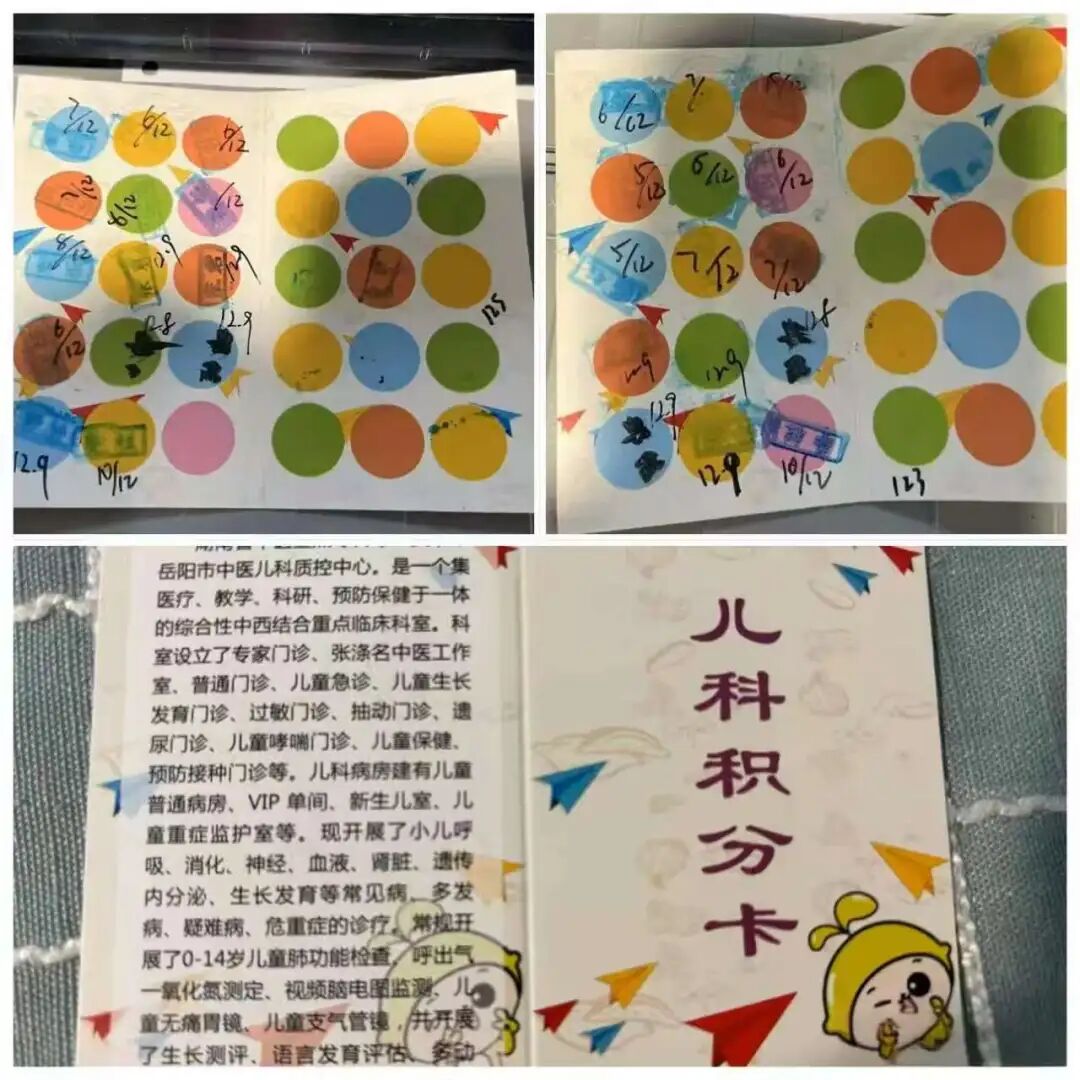 7/12 6/12 5/12
7/12 6/12 /12
8/12 12.9 12.9
6/12 12.8 12.9
12.9 10/12
125
6/12 7/
5/12 6/12 6/12
5/12 7/12 7/12
12.9 12.9 12.8
12.9 12.9 10/12
123
岳阳市中医儿科质控中心。是一个集
医疗、教学、科研、预防保健于一体
的综合性中西结合重点临床科室。科
室设立了专家门诊、张涤名中医工作
室、普通门诊、儿童急诊、儿童生长
发育门诊、过敏门诊、抽动门诊、遗
尿门诊、儿童哮喘门诊、儿童保健、
预防接种门诊等。儿科病房建有儿童
普通病房、VIP 单间、新生儿室、儿
童重症监护室等。现开展了小儿呼
吸、消化、神经、血液、肾脏、遗传
内分泌、生长发育等常见病、多发
病、疑难病、危重症的诊疗。常规开
展了0-14岁儿童肺功能检查、呼出气
一氧化氮测定、视频脑电图监测、儿
童无痛胃镜、儿童支气管镜，并开展
了生长测评、语言发育评估、多动
儿科积分卡